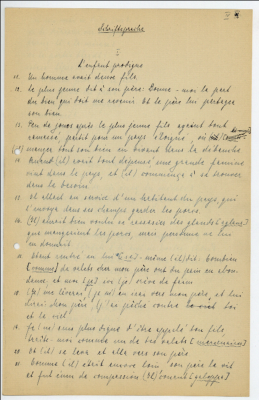 Schriftsprache
I
L'enfant prodigue
11. Un homme avait deux fils.
12. Le plus jeune dit à son père: Donne-moi la part
du bien qui doit me revenir. Et le père leur partagea
son bien.
13. Peu de jours après le plus jeune fils ayant tout
ramassé, partit pour un pays éloigné, où
manger tout son bien en vivant dans la débauche
14. (il) avait tout dépensé une grande famine
vint dans le pays et (il) commença à se trouver
dans le besoin.
15. et alla au service d'un habitant du pays, qui
l'envoya dans ses champs garder les porcs.
16. (Il) aurait bien voulu se rassasier des
que mangeaient les porcs, mais personne ne lui
en donnait
17. étant rentré en lui-même (il) dit: combien
de valets chez mon père ont du pain en abondance
et moi (je) ici (je) meurs de faim
18. (Je) me lèverai (je) m'en irai vers mon père, et lui
dirai: mon père, (j')ai péché contre toi
et le ciel
19. Je (ne) suis plus digne d'être appelé ton fils
traite-moi comme un de tes valets
20. et (il) se leva et alla vers son père
comme (il) était encore loin son père le vit
et fut ému de compassion